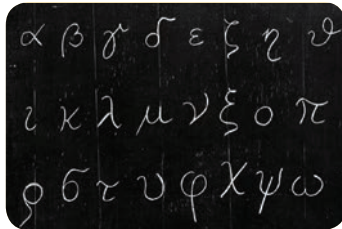 α β γ δ ε ζ η ϑ
ι κ λ μ ν ξ ο π
ρ σ τ υ φ χ ψ ω